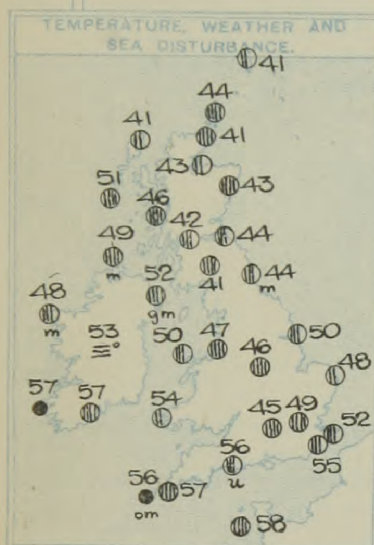 TEMPERATURE, WEATHER AND
SEA DISTURBANCE.
41
44
41
41
43
43
51
46
42
44
49
m
41
44
m
52
gm
48
m
53
50
47
50
46
48
57
57
54
45
49
52
55
56
u
56
om
57
58